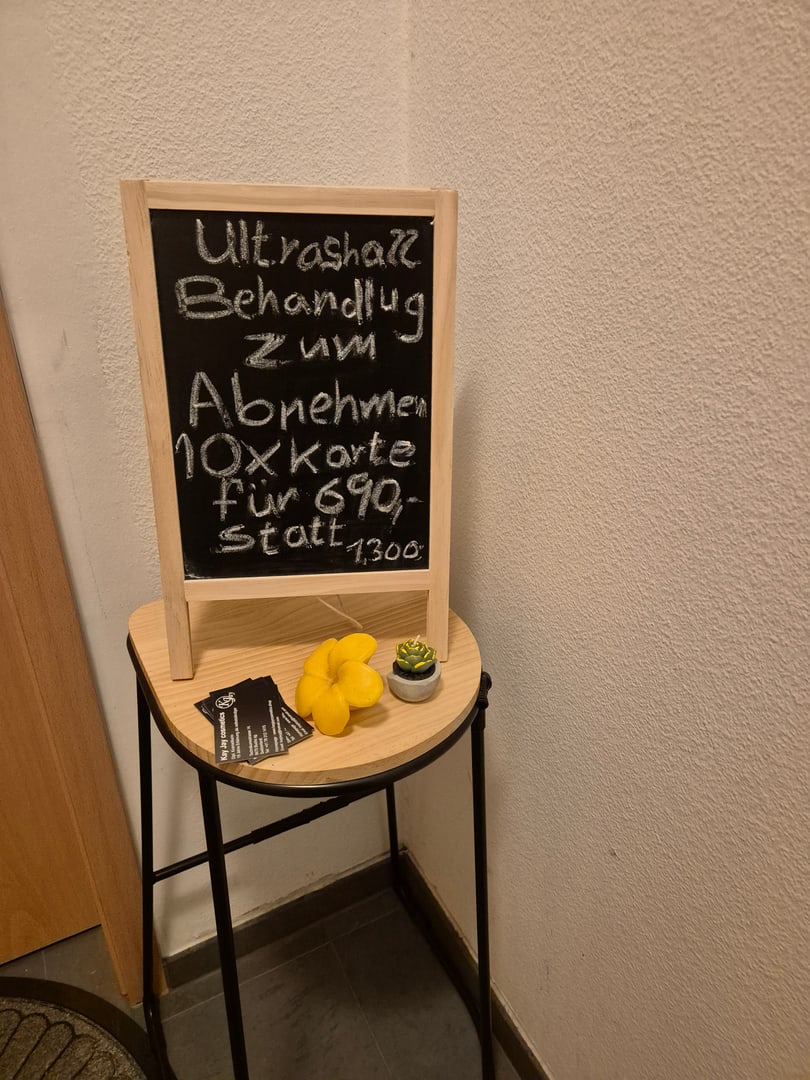 Ultrashall
Behandlug
zum
Abnehmen
10x Karte
für 690,-
statt 1,300.
Kay Jay cosmetics
KJ